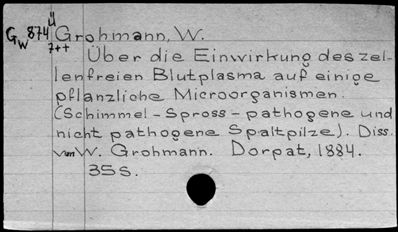 4
Gw 874 Grohmann, W.
7++
Über die Einwirkung des zel-
lenfreien Blutplasma auf einige
pflanzliche Microorganismen.
(Schimmel-Spross-pathogene und
nicht pathogene Spaltpilze). Diss.
von W. Grohmann. Dorpat, 1884.
35 s.